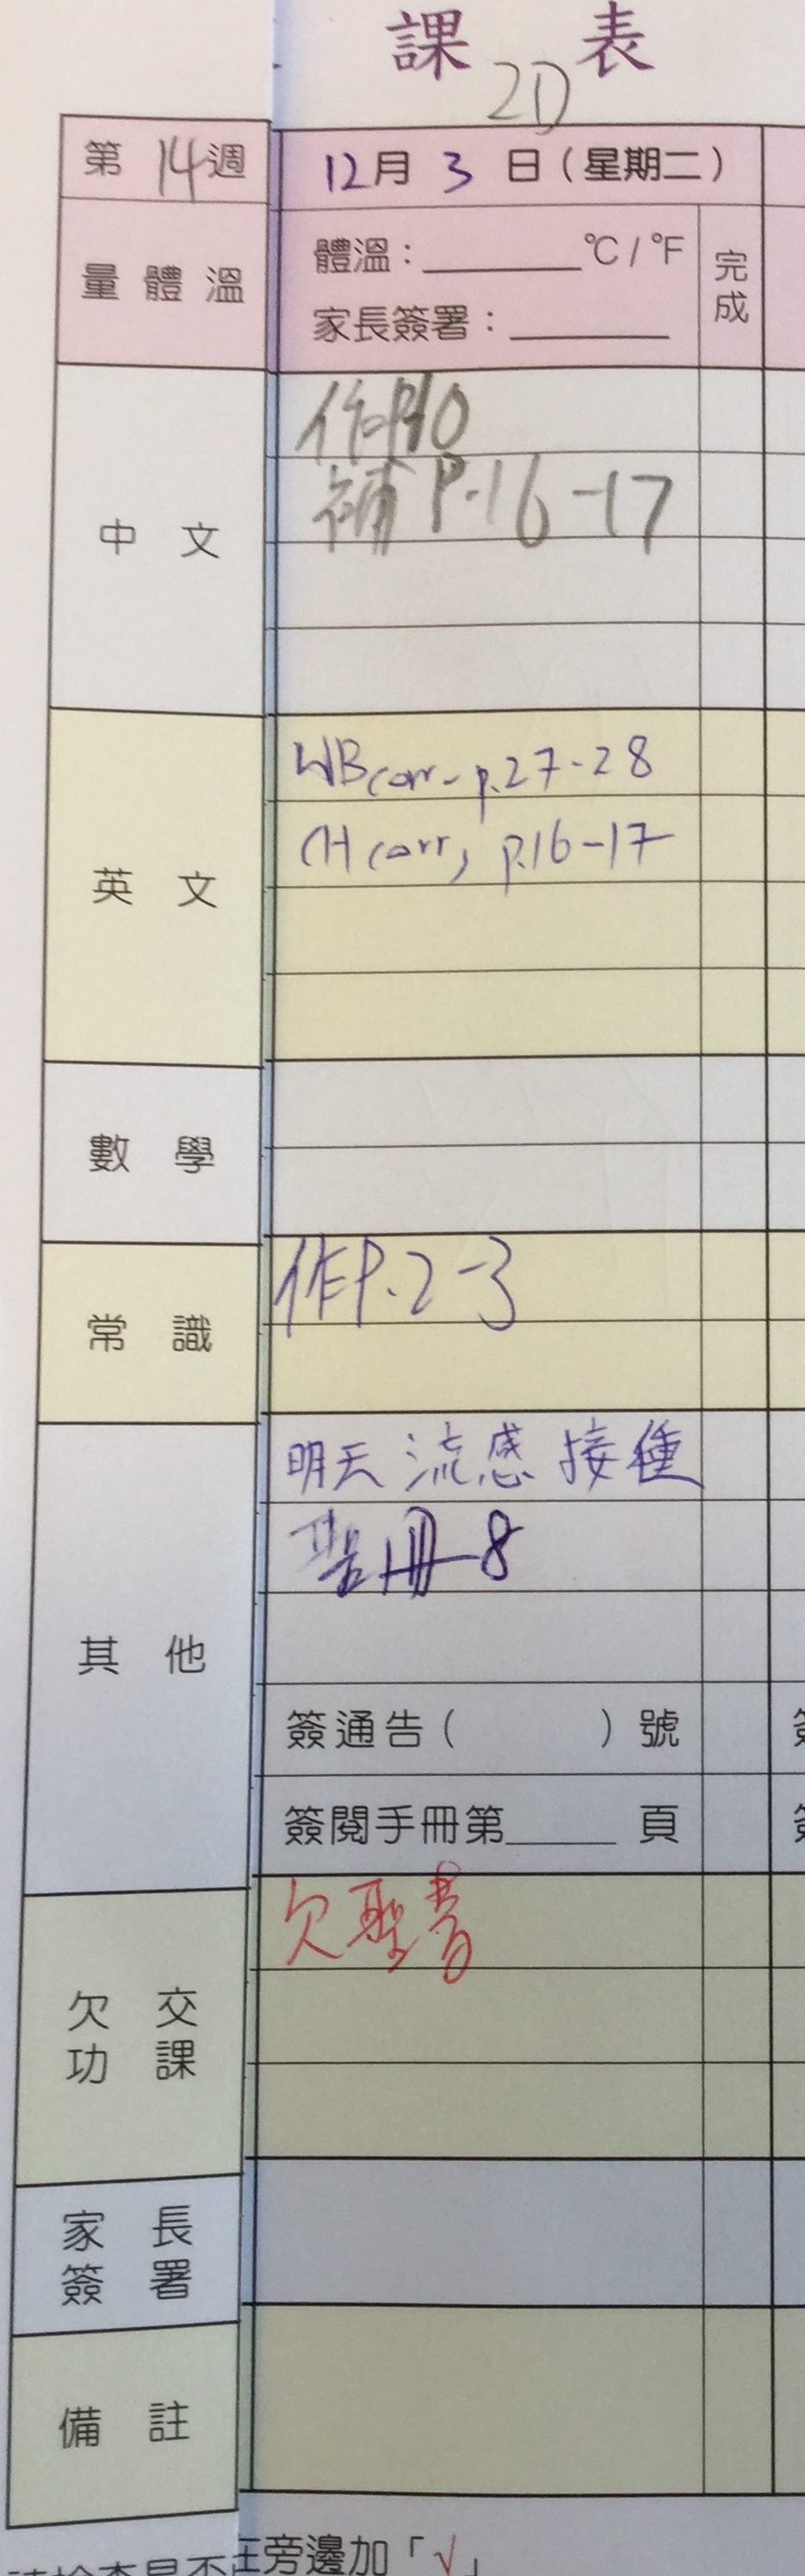 課表
2D
第14週
12月3日（星期二）
量體溫
體溫：______°C/°F
完成
家長簽署：______
中文
作P.10
補P.16-17
英文
WB corr. p.27-28
CH corr, p.16-17
數學
常識
作P.2-3
其他
明天流感接種
聖冊-8
簽通告（　　）號
簽閱手冊第____頁
欠交功課
欠聖書
家長簽署
備註
在旁邊加「√」